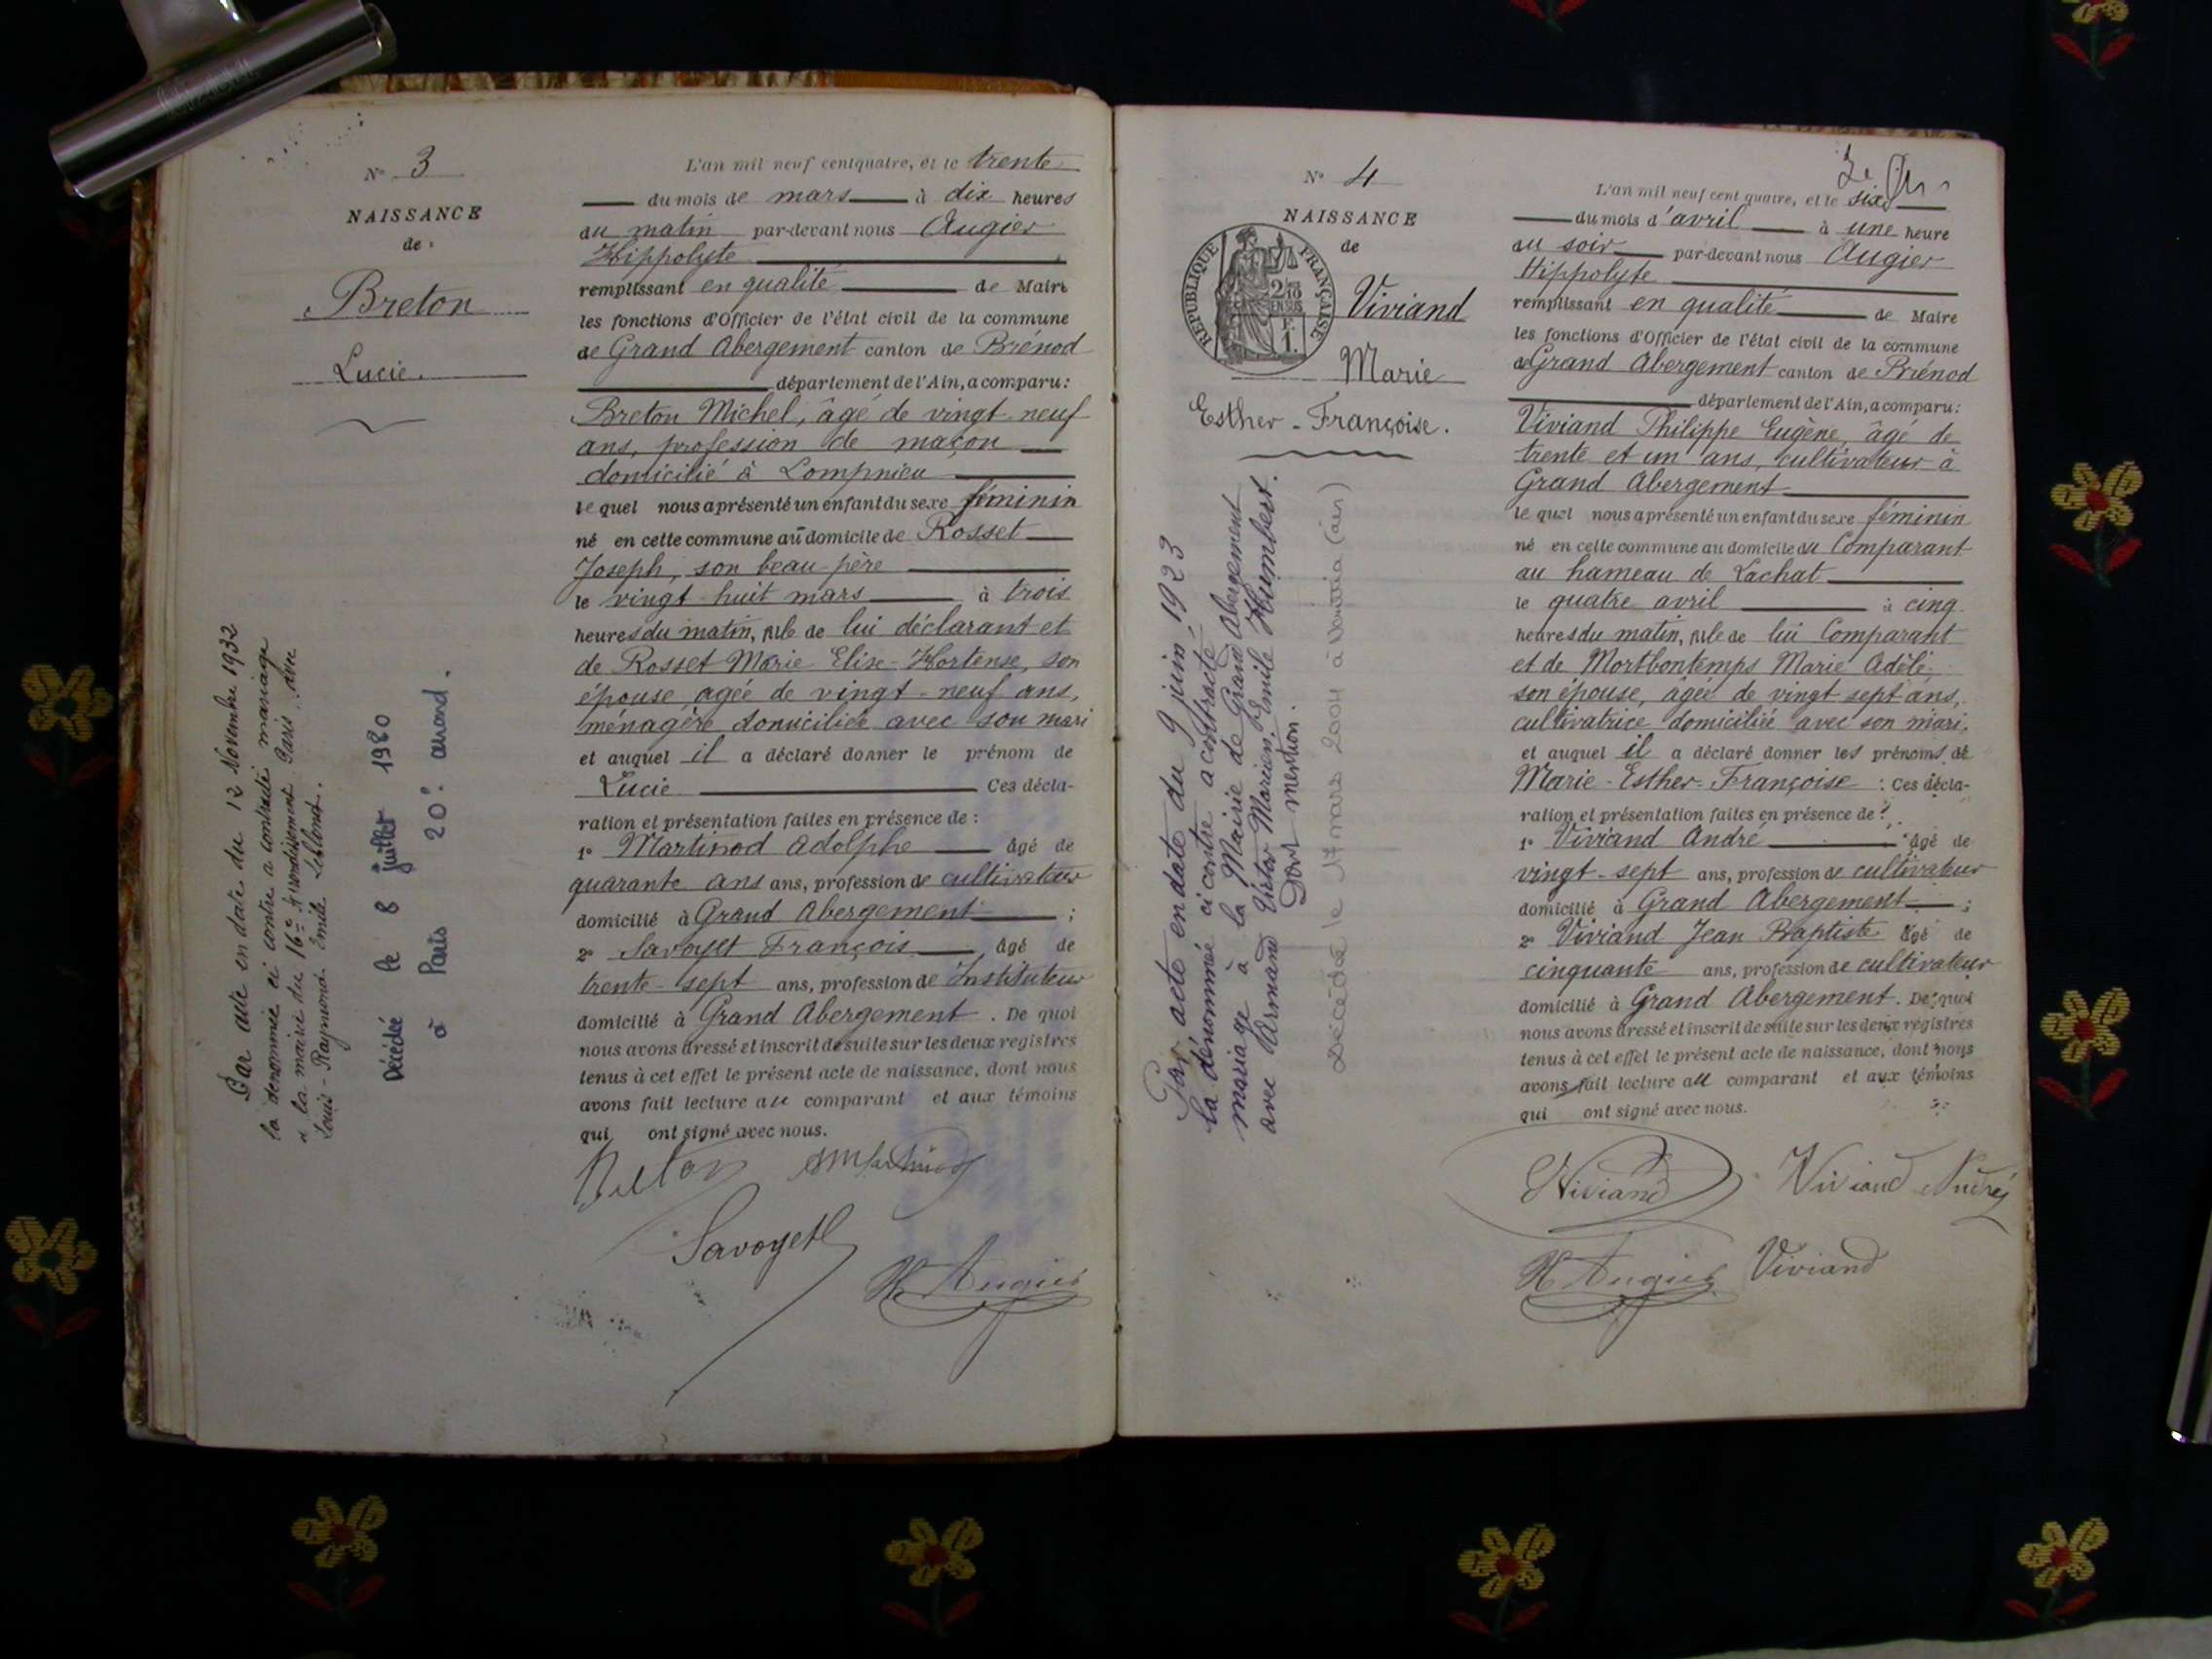 N° 3
NAISSANCE
de
Breton
Lucie.
Par acte en date du 12 Novembre 1932
la dénommée ci contre a contracté mariage
à la mairie du 16me Arrondissement Paris avec
Louis-Raymond Emile Leblond.
Décédée le 8 juillet 1980
à Paris 20e arrond.
L'an mil neuf cent quatre, et le trente
du mois de mars à dix heures
du matin par-devant nous Augier
Hippolyte
remplissant en qualité de Maire
les fonctions d'Officier de l'état civil de la commune
de Grand Abergement canton de Brénod
département de l'Ain, a comparu :
Breton Michel, âgé de vingt neuf
ans, profession de maçon
domicilié à Lompnieu
le quel nous a présenté un enfant du sexe féminin
né en cette commune au domicile de Rosset
Joseph, son beau-père
le vingt-huit mars à trois
heures du matin, fille de lui déclarant et
de Rosset Marie Elise-Hortense, son
épouse agée de vingt-neuf ans,
ménagère domiciliée avec son mari
et auquel il a déclaré donner le prénom de
Lucie Ces décla-
ration et présentation faites en présence de :
1° Martinod Adolphe âgé de
quarante ans ans, profession de cultivateur
domicilié à Grand Abergement ;
2° Savoyet François âgé de
trente-sept ans, profession de Instituteur
domicilié à Grand Abergement . De quoi
nous avons dressé et inscrit de suite sur les deux registres
tenus à cet effet le présent acte de naissance, dont nous
avons fait lecture au comparant et aux témoins
qui ont signé avec nous.
Breton
Savoyet
H Augier
N° 4
NAISSANCE
de
REPUBLIQUE FRANÇAISE
Viviand
Marie
Esther-Françoise.
Par acte en date du 9 juin 1923
la dénommée ci contre a contracté
mariage à la Mairie de Grand Abergement
avec Armand Victor Marien Emile Humbert.
Dont mention.
Décédée le 17 mars 2004 à (Ain)
L'an mil neuf cent quatre, et le six
du mois d'avril à une heure
du soir par-devant nous Augier
Hippolyte
remplissant en qualité de Maire
les fonctions d'Officier de l'état civil de la commune
de Grand Abergement canton de Brénod
département de l'Ain, a comparu :
Viviand Philippe Eugène, âgé de
trente et un ans, cultivateur à
Grand Abergement
le quel nous a présenté un enfant du sexe féminin
né en cette commune au domicile du Comparant
au hameau de Lachat
le quatre avril à cinq
heures du matin, fille de lui Comparant
et de Mortbontemps Marie Adèle
son épouse, âgée de vingt sept ans,
cultivatrice domiciliée avec son mari,
et auquel il a déclaré donner les prénoms de
Marie-Esther-Françoise : Ces décla-
ration et présentation faites en présence de :
1° Viviand André âgé de
vingt-sept ans, profession de cultivateur
domicilié à Grand Abergement ;
2° Viviand Jean Baptiste âgé de
cinquante ans, profession de cultivateur
domicilié à Grand Abergement. De quoi
nous avons dressé et inscrit de suite sur les deux registres
tenus à cet effet le présent acte de naissance, dont nous
avons fait lecture au comparant et aux témoins
qui ont signé avec nous.
Viviand Viviand André
H Augier Viviand